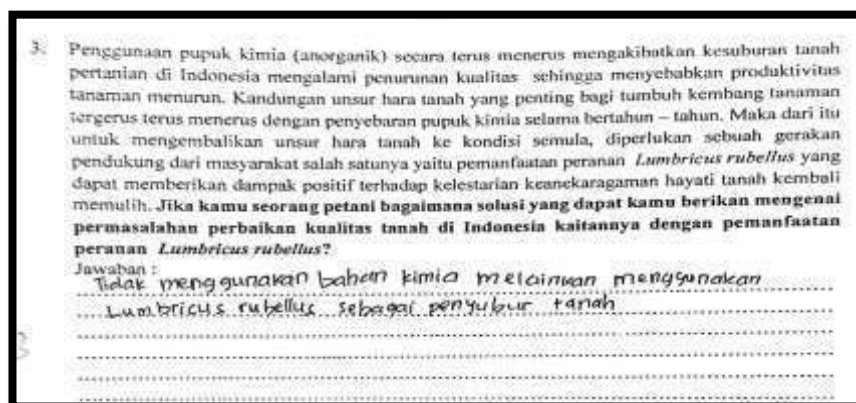 3. Penggunaan pupuk kimia (anorganik) secara terus menerus mengakibatkan kesuburan tanah
pertanian di Indonesia mengalami penurunan kualitas sehingga menyebabkan produktivitas
tanaman menurun. Kandungan unsur hara tanah yang penting bagi tumbuh kembang tanaman
tergerus terus menerus dengan penyebaran pupuk kimia selama bertahun – tahun. Maka dari itu
untuk mengembalikan unsur hara tanah ke kondisi semula, diperlukan sebuah gerakan
pendukung dari masyarakat salah satunya yaitu pemanfaatan peranan Lumbricus rubellus yang
dapat memberikan dampak positif terhadap kelestarian keanekaragaman hayati tanah kembali
memulih. Jika kamu seorang petani bagaimana solusi yang dapat kamu berikan mengenai
permasalahan perbaikan kualitas tanah di Indonesia kaitannya dengan pemanfaatan
peranan Lumbricus rubellus?
Jawaban :
Tidak menggunakan bahan kimia melainkan menggunakan
Lumbricus rubellus sebagai penyubur tanah